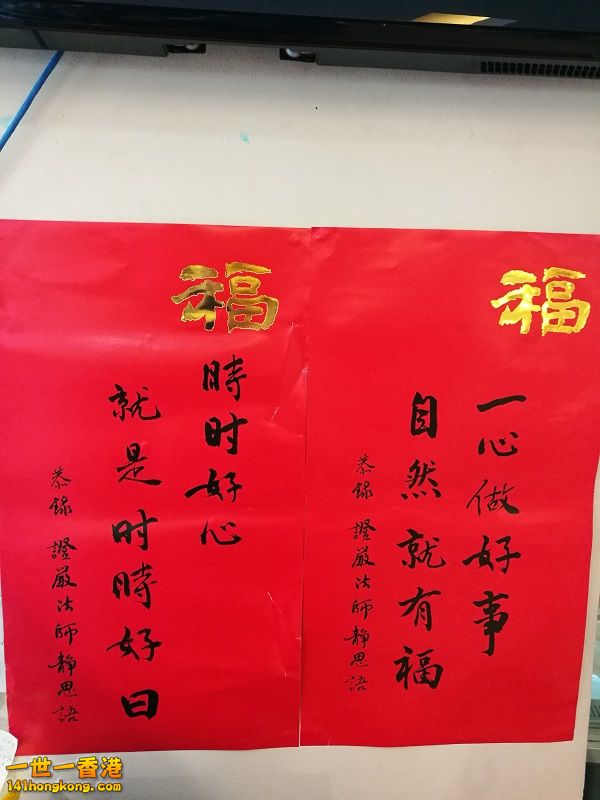 福
一心做好事
自然就有福
恭錄 證嚴法師靜思語
福
時时好心
就是时時好日
恭錄 證嚴法師靜思語
一世一香港
141hongkong.com